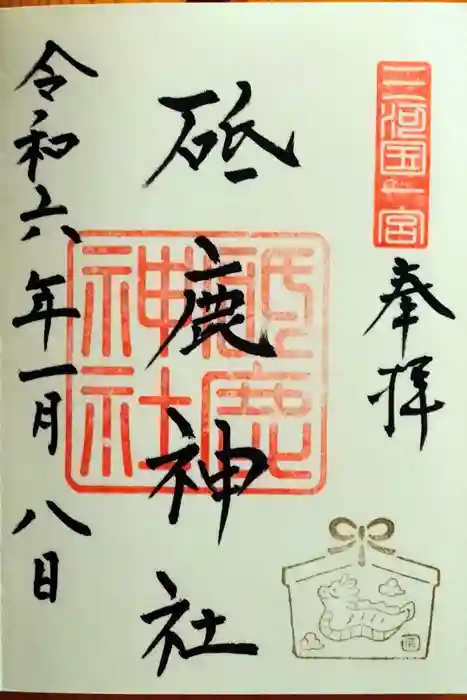 三河国一宮
奉拝
砥鹿神社
砥鹿神社
令和六年一月八日